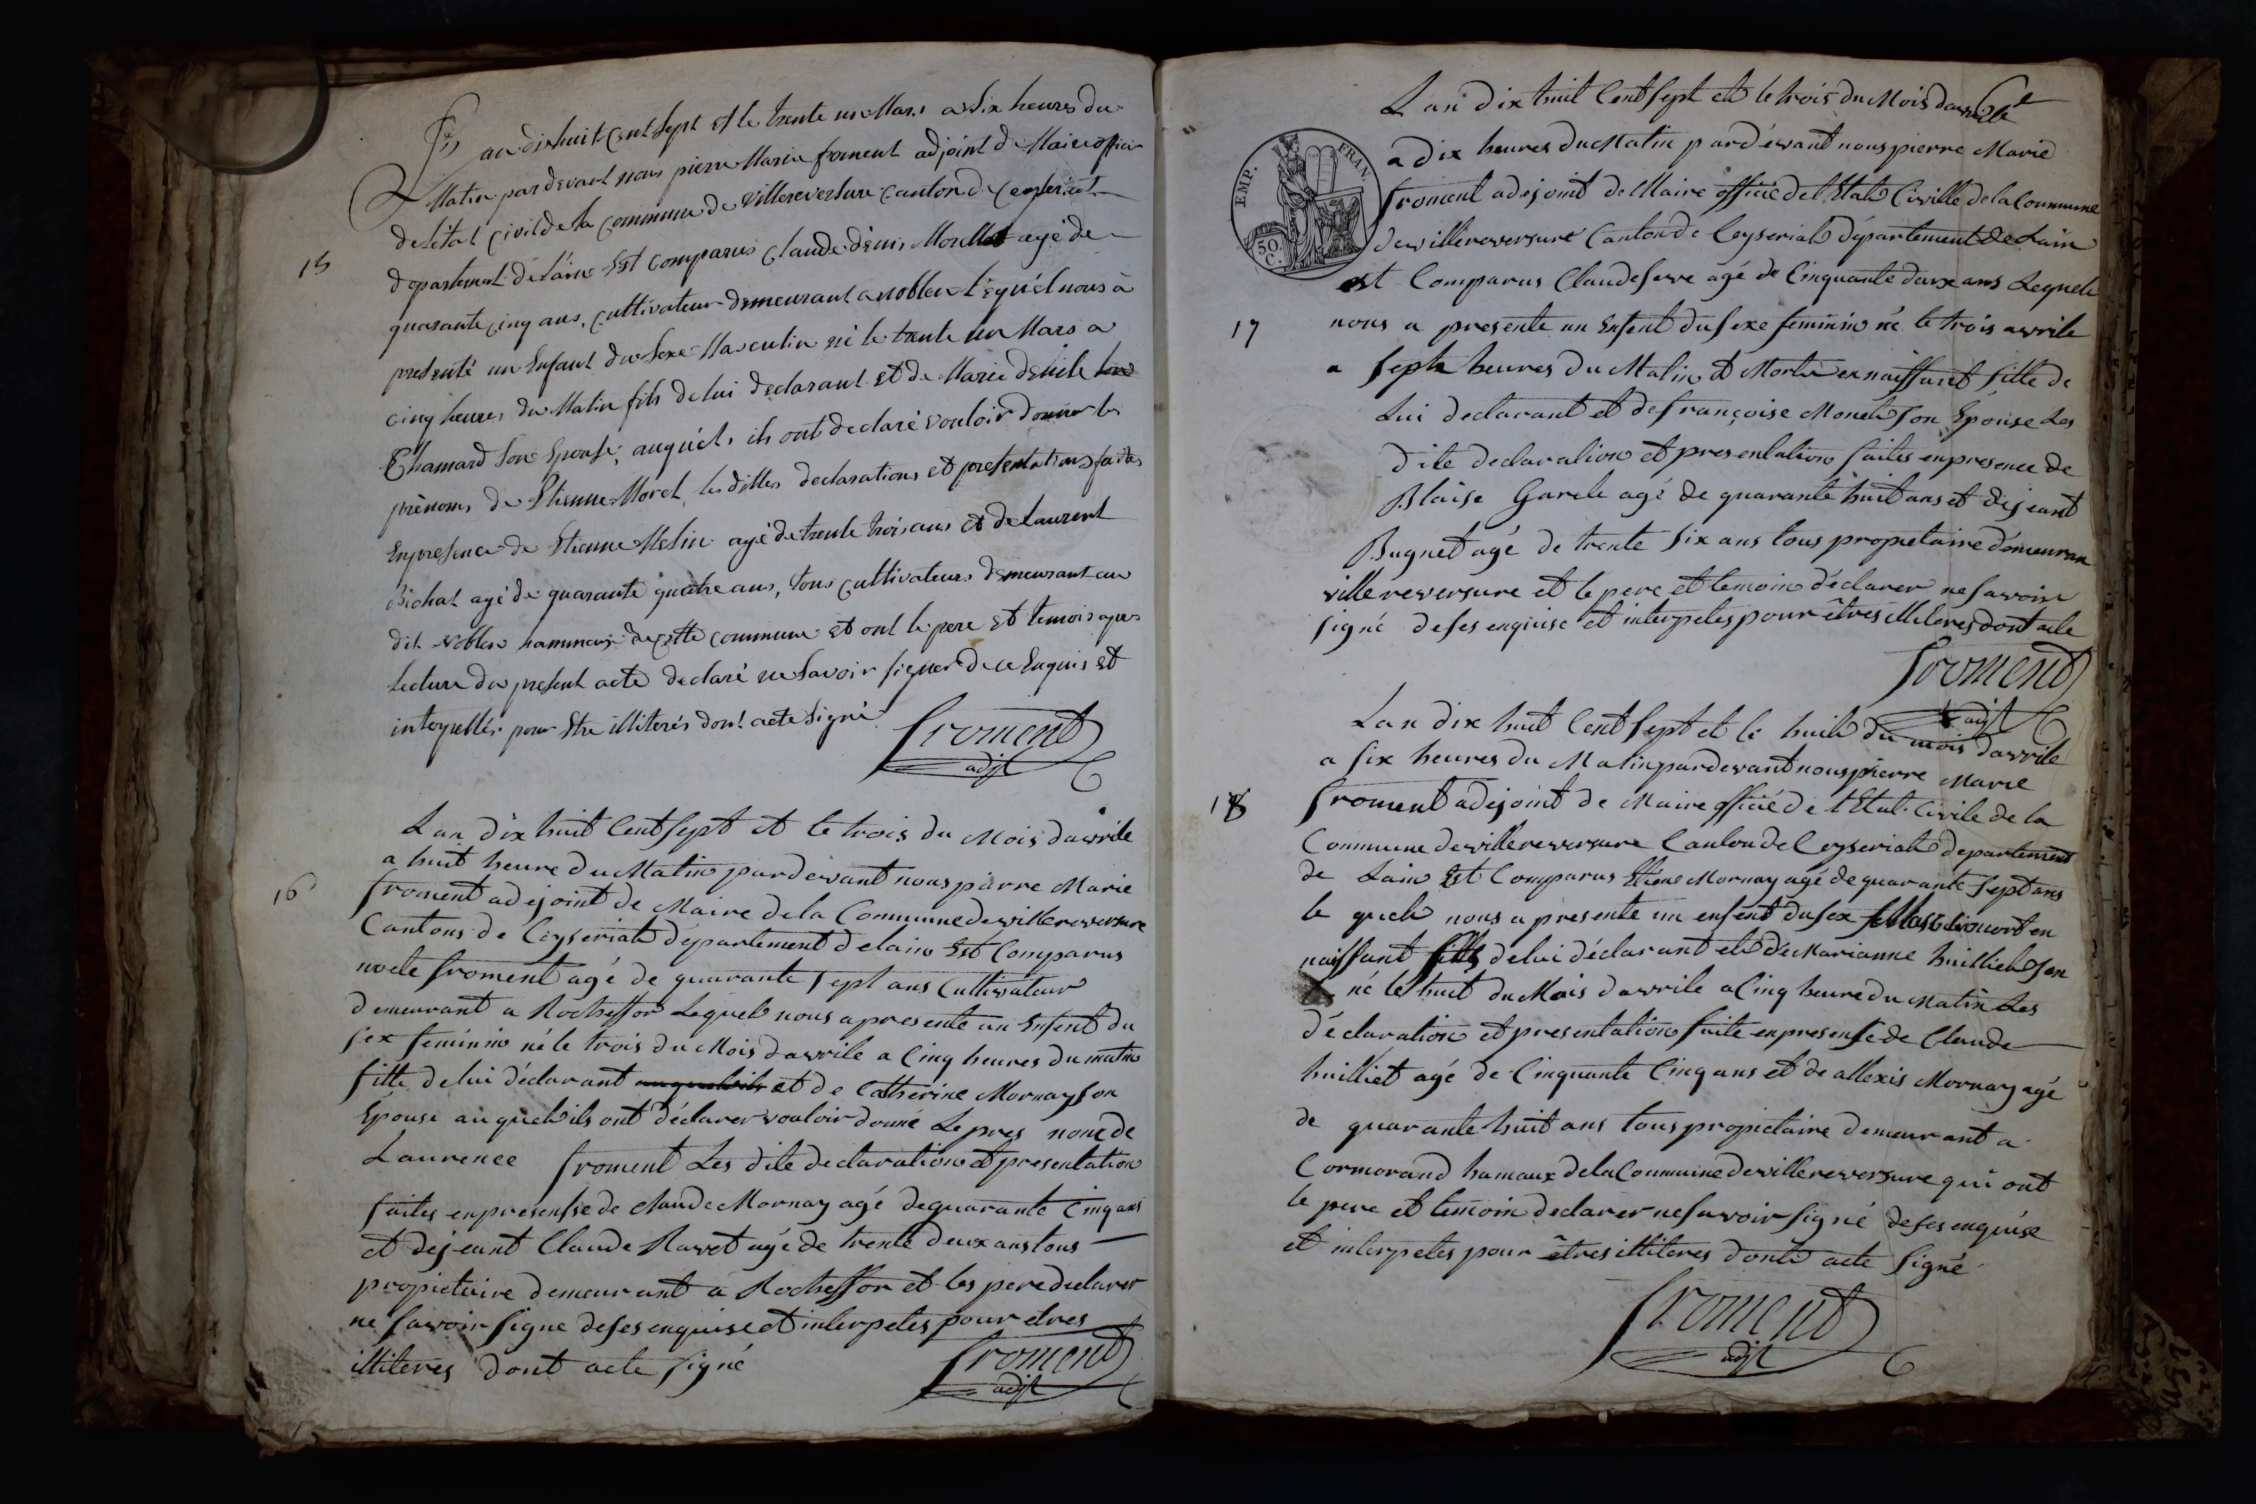 15
L'an dix huit cent sept et le trente un Mars a Six heures du
Matin pardevant nous pierre Marie froment adjoint de Maire officier
de l'état civil de la commune de Villereversure canton de Ceyzeriat
departement de l'ain Est comparus Claude denis Morellet agé de
quarante cinq ans, cultivateur demeurant a noblen lequel nous à
presenté un Enfant du Sexe Masculin né le trente un Mars a
cinq heures du Matin fils de lui declarant et de Marie denise
Chamard Son Epouse, auquels ils ont declaré vouloir donner les
prénoms de Etienne Morel lesdittes declarations et presentations faites
En presence de Etienne Meslin agé de trente trois ans et de laurent
Bichat agé de quarante quatre ans, tous cultivateurs demeurant au
dit noblen hammeau de cette commune Et ont le pere Et temois apres
Lecture du present acte declaré ne Savoir signer de ce Enquis Et
interpellés pour Etre illiterés dont acte Signé
froment
adjt
16
Lan dix huit Cent Sept et le trois du Mois davrile
a huit heure du Matin pardevant nous pierre Marie
froment adejoint de Maire de la Commune de villereversure
Cantons de Ceyseriat département delain Est Comparus
froment agé de quarante sept ans Cultivateur
demeurant a Rocheffor Lequel nous a presente un Enfent du
sex feminin né le trois du Mois davrile a Cinq heures du matin
fille de lui déclarant et de Catherine Mornay son
Épouse auquel ils ont déclarer vouloir donné Le pres nom de
Laurence froment Les dite declaration et presentation
faites en presensse de claude Mornay agé de quarante Cinq ans
et dejeant Claude Ravet agé de trente deux ans tous
propietaire demeurant a Rocheffor et les pere declarer
ne savoir signe de ses enquise et interpeles pour etres
illiteres dont acte signé
froment
adjt
EMP. FRAN.
50 C.
17
Lan dix huit Cent sept et le trois du Mois davrile
a dix heures du Matin pardévant nous pierre Marie
froment adejoint de Maire officié del Etat Civille de la Commune
de villereversure Canton de Ceyseriat département de Lain
est Comparus Claude serve agé de Cinquante deux ans Lequel
nous a presente un Enfent du sexe feminin né le trois avrile
a sept heures du Matin et Morte en naissant fille de
Lui declarant et de françoise Monet son Épouse Les
dite declaration et presentation faites en presence de
Blaise Garele agé de quarante huit ans et dejeant
Bugnet agé de trente six ans tous propietaire démeuran
villereversure et le pere et temoin déclarer ne savoir
signé de ses enquise et interpeles pour êtres illiteres dont acte
froment
adjt
18
Lan dix huit Cent sept et le huit du mois davrile
a six heures du Matin pardevant nous pierre Marie
froment adejoint de Maire officié de l Etat Civile de la
Commune de villereversure Canton de Ceyseriat departement
de Lain Est Comparus Etiene Mornay agé de quarante sept ans
le quel nous a presente un enfent du sex mort en
naissant de lui déclarant et de Marianne huilliet son
né le huit du Mois davrile a Cinq heure du Matin Les
déclaration et presentation faite en presensse de Claude
huilliet agé de Cinquante Cinq ans et de allexis Mornay agé
de quarante huit ans tous propietaire demeurant a
Cormorand hamaux de la Commune de villereversure qui ont
le pere et temoin declarer ne savoir signé de ses enquise
et interpeles pour êtres illiteres donte acte signé
froment
adjt